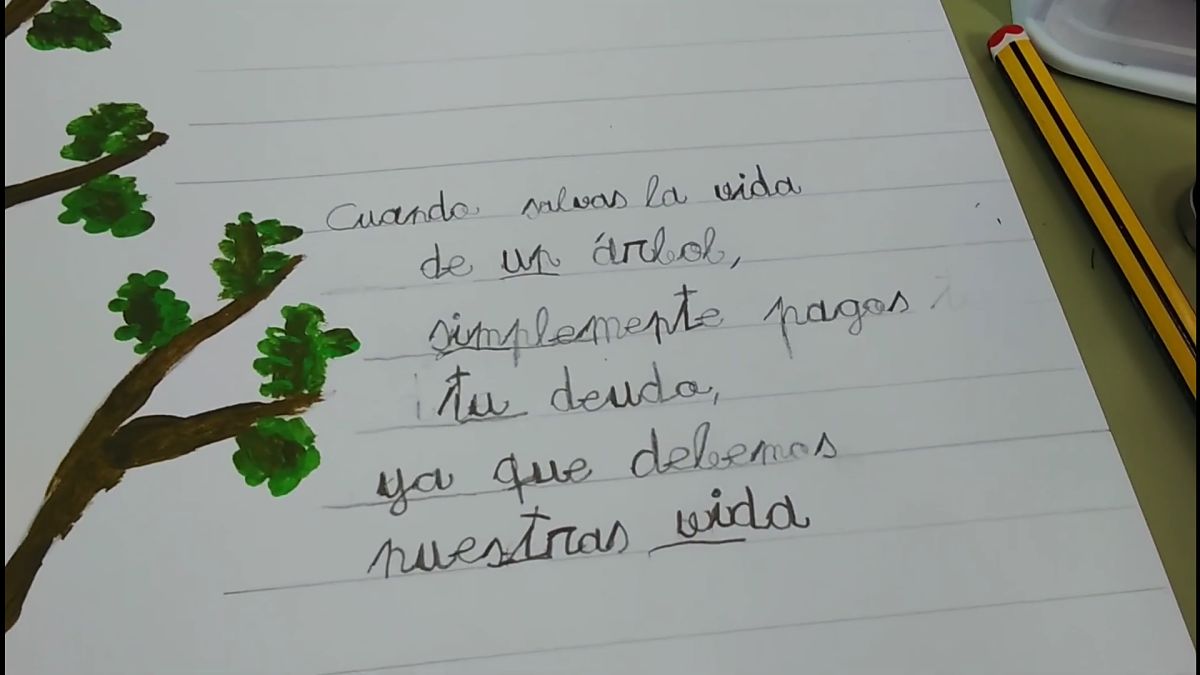 Cuando salvas la vida
de un árbol,
simplemente pagas
tu deuda,
ya que debemos
nuestras vida